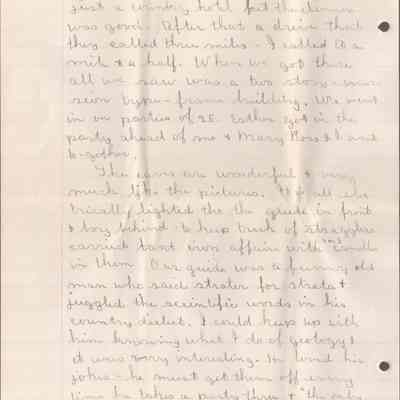 just a country hotel but the dinner
was good. After that a drive that
they called three miles - I called it a
mile & a half. When we got there
all we saw was a two story
seion type - frame building. We went
in in parties of 25. Esther got in the
party ahead of me & Mary Rose & I went
together.
The caves are wonderful & very
much like the pictures. It is all elec
trically lighted tho the guide in front
& boy behind to keep track of stragglers
carried lant ern affairs with candle
in them. Our guide was a funny old
man who said strater for strata &
juggled the scientific words in his
country dialect. I could keep up with
him knowing what I do of geology &
it was very interesting. He loved his
jokes - he must get them off every
time he takes a party thru & "the